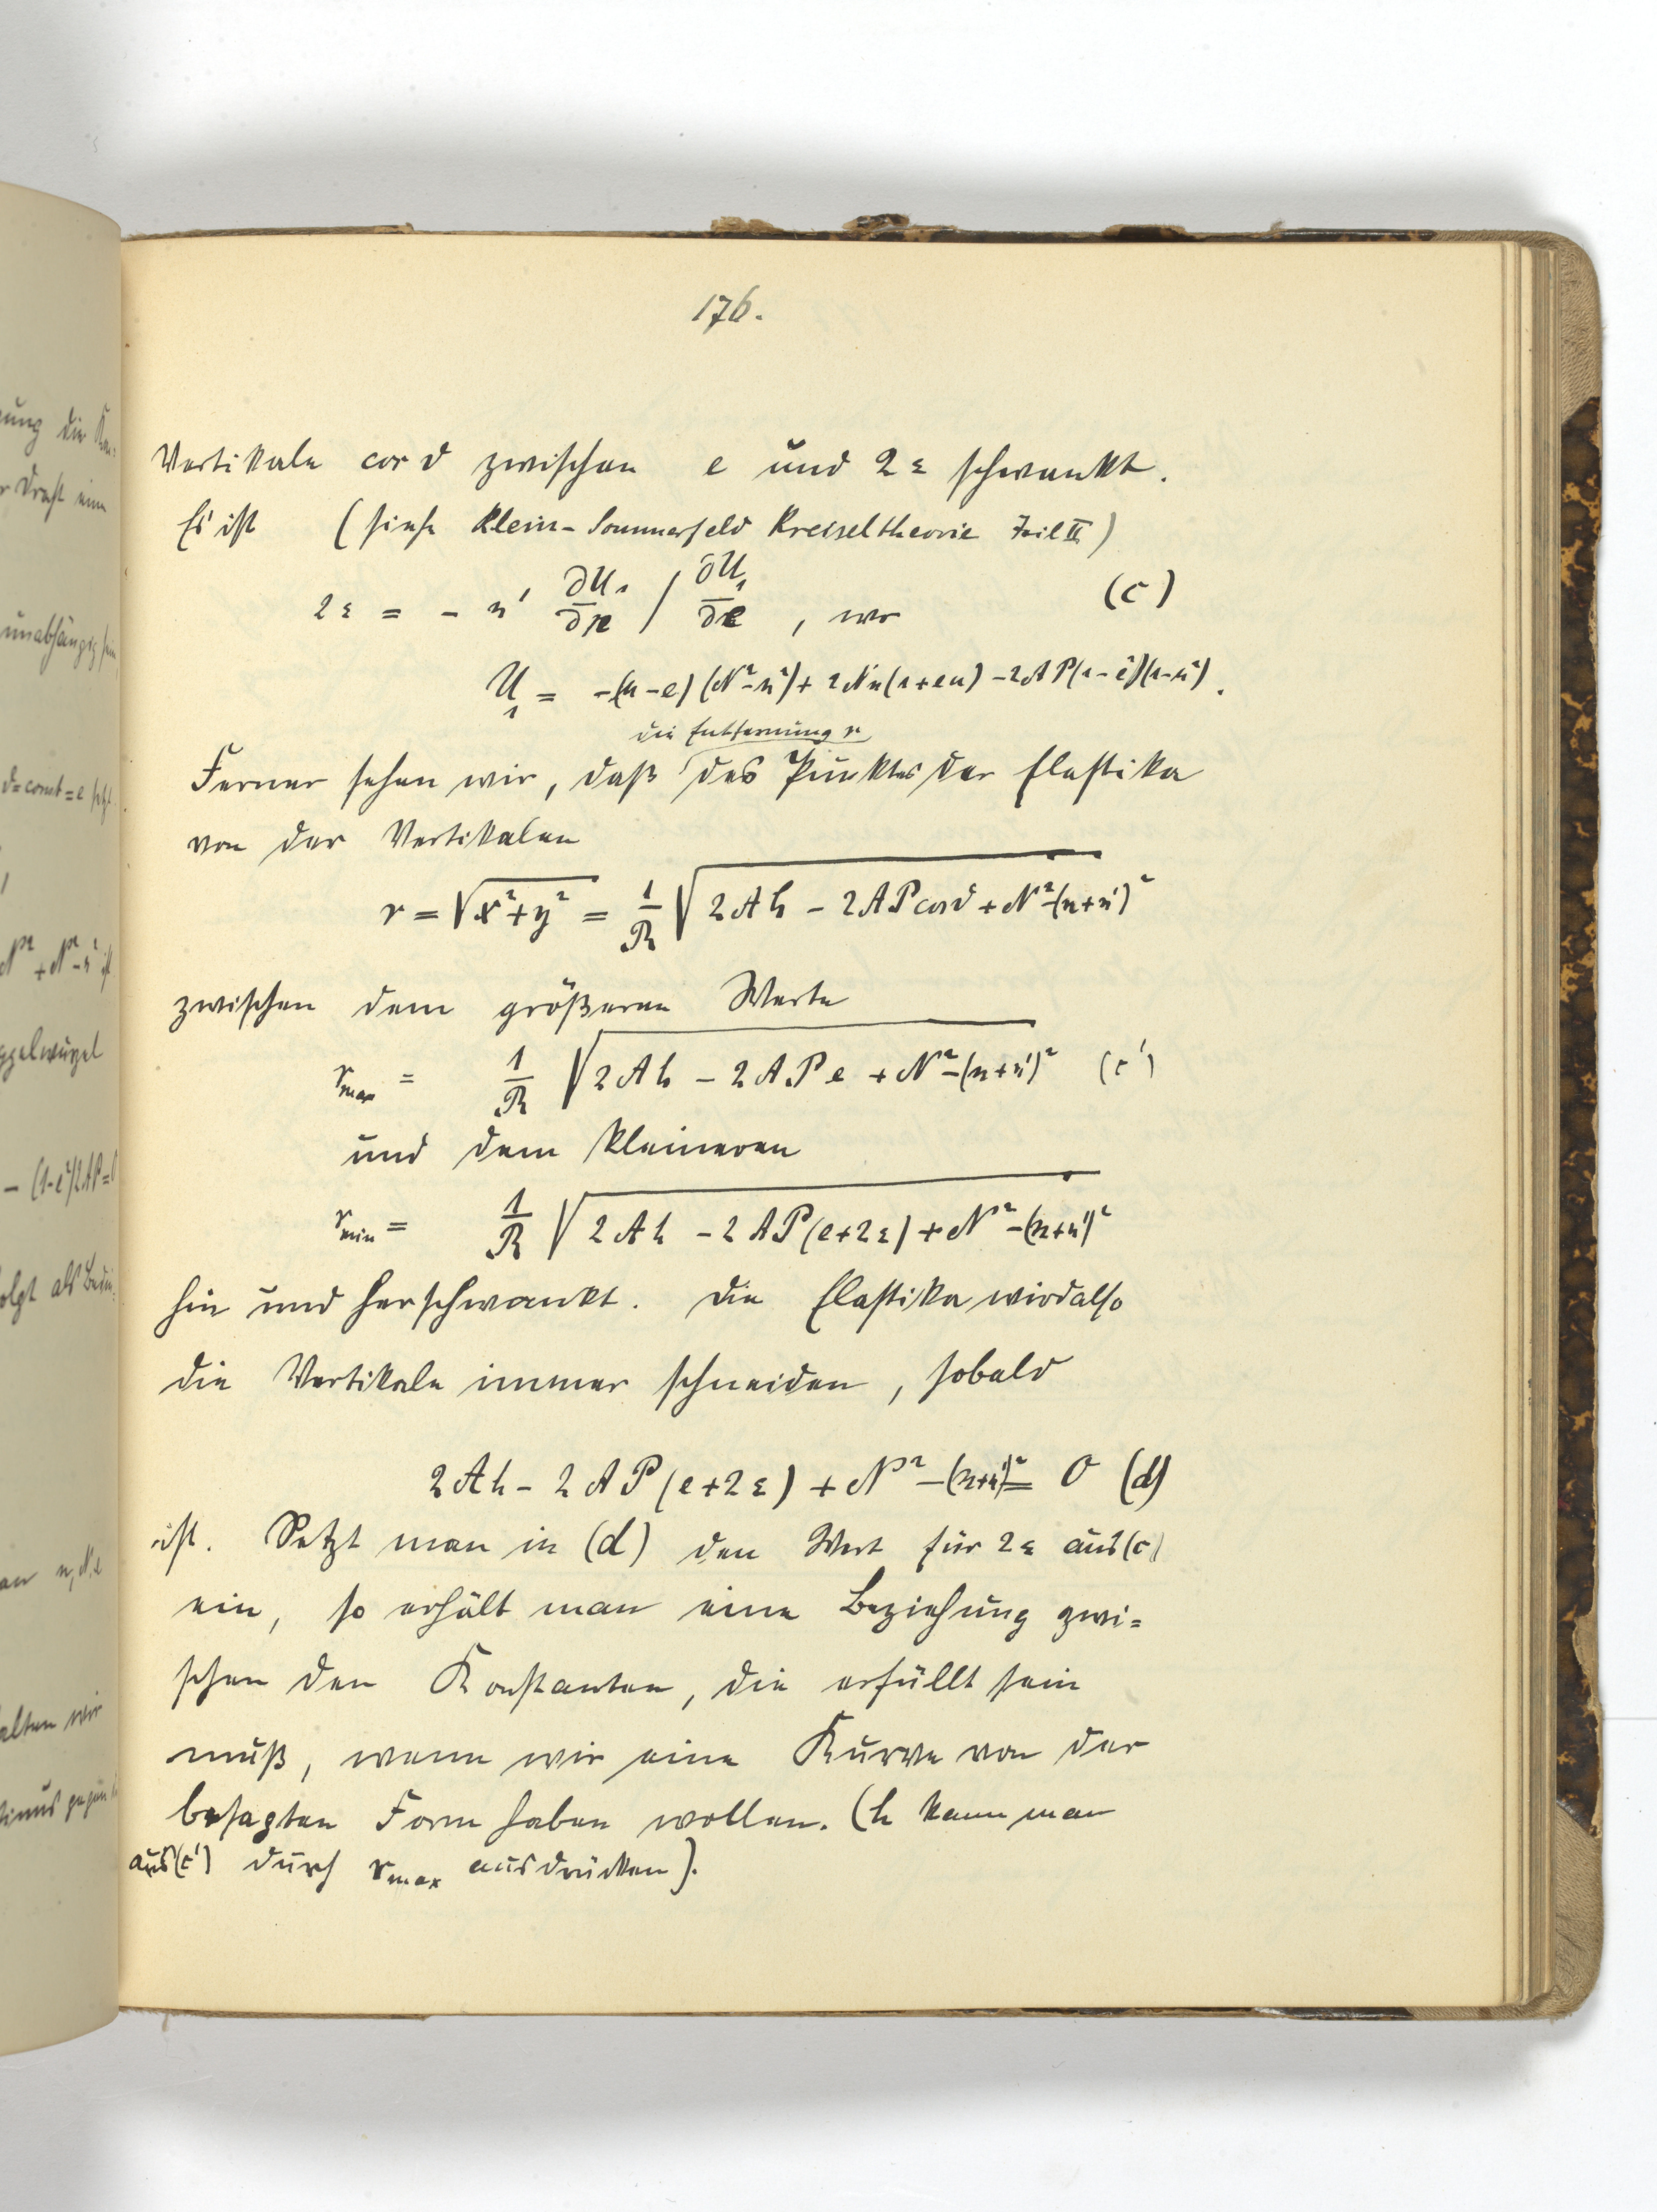 176.
Vertikale cos ϑ zwischen e und 2ε schwankt.
Es ist (siehe Klein-Sommerfeld Kreiseltheorie Teil II)
2ε = - n' ∂U₁/∂n / ∂U₁/∂e , wo (c)
U₁ = -(u-e)(N²-n²)+2Nn(1+eu)-2AP(1-e²)(1-u²).
die Entfernung r
Ferner sehen wir, daß des Punktes der Elastika
von der Vertikalen
r = √x²+y² = 1/R √2Ah - 2AP cos ϑ + N²-(n+n')²
zwischen dem größeren Werte
r max = 1/R √2Ah - 2APe + N²-(n+n')² (c')
und dem kleineren
r min = 1/R √2Ah - 2AP(e+2ε) + N²-(n+n')²
hin und herschwankt. Die Elastika wird also
die Vertikale immer schneiden, sobald
2Ah - 2AP(e+2ε) + N² -(n+n')² = 0 (d)
ist. Setzt man in (d) den Wert für 2ε aus (c)
ein, so erhält man eine Beziehung zwi=
schen den Konstanten, die erfüllt sein
muß, wenn wir eine Kurve von der
besagten Form haben wollen. (h kann man
aus (c') durch r max ausdrücken).
ung die Kon-
r Draht eine
unabhängig sein
ϑ=const=e setzt
- (1-e²)2AP=0
olgt als Bedin-
alten wir